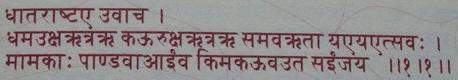 धातराष्टए उवाच ।
धमउक्षऋत्रऋ कऊरुक्षऋत्रऋ समवऋता यएयएत्सवः ।
मामकाः पाण्डवाआईव किमकऊवउत सईजय ।।१।१।।